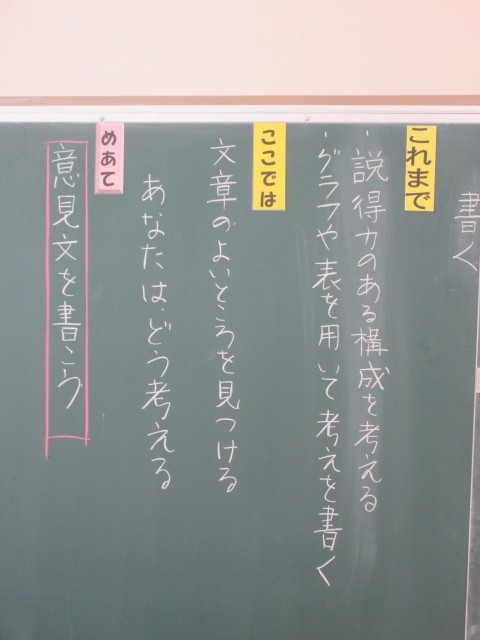 書く
これまで
・説得力のある構成を考える
・グラフや表を用いて考えを書く
ここでは
文章のよいところを見つける
あなたは、どう考える
めあて
意見文を書こう